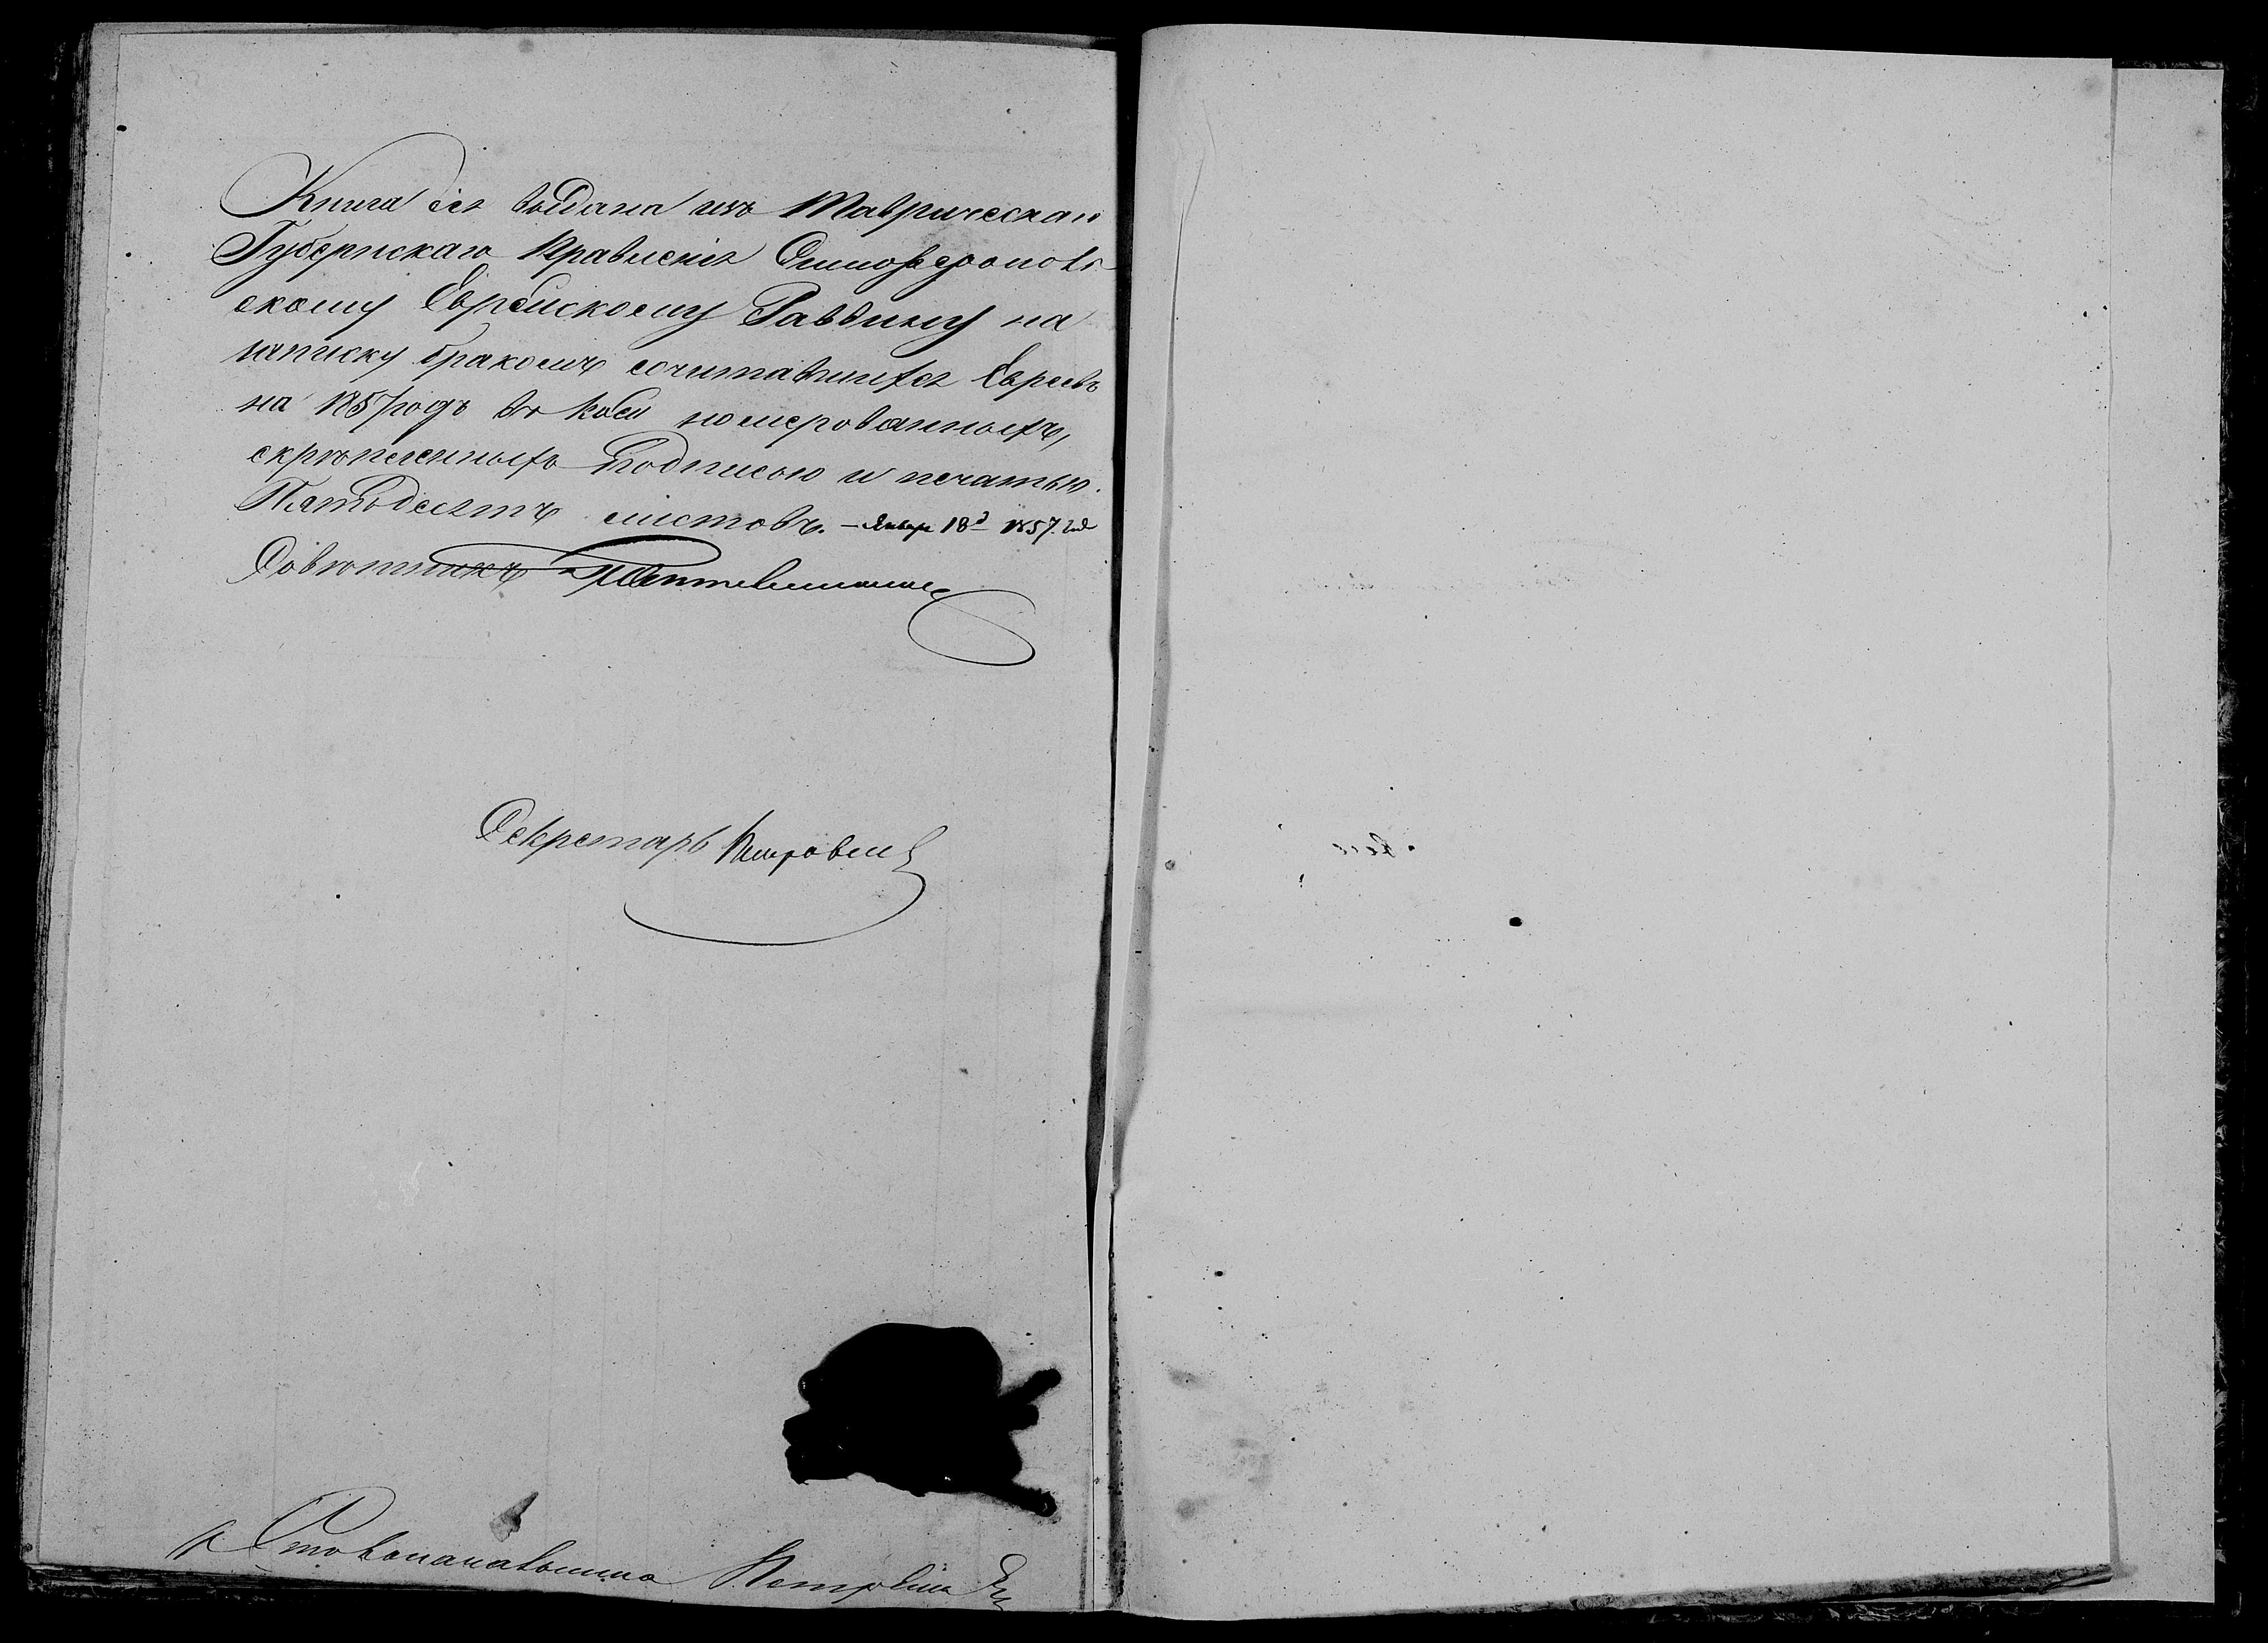 Книга сія выдана изъ Таврическаго
Губернскаго Правленія Симферополь-
скому Еврейскому Раввину на
записку бракомъ сочитавшихся Евреевъ
на 1857 годъ въ коей номерованныхъ,
скрѣпленныхъ подписью и печатью
Пятьдесятъ листовъ. – Январ 18д 1857. год
Совѣтникъ
Секретарь